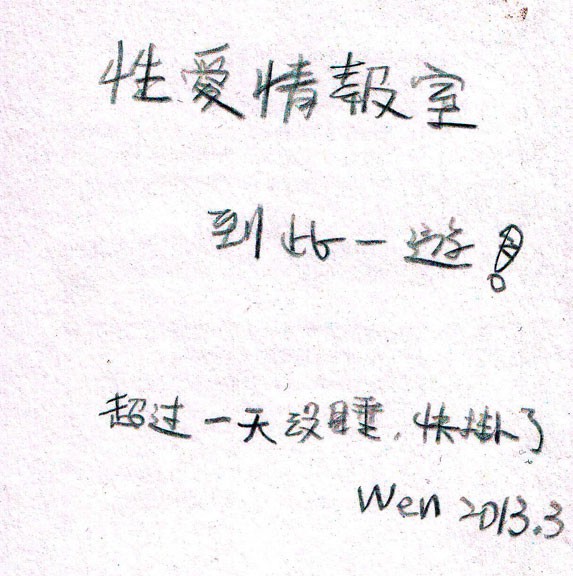 性愛情報室
到此一遊!
超过一天没睡,快掛了
Wen 2013.3